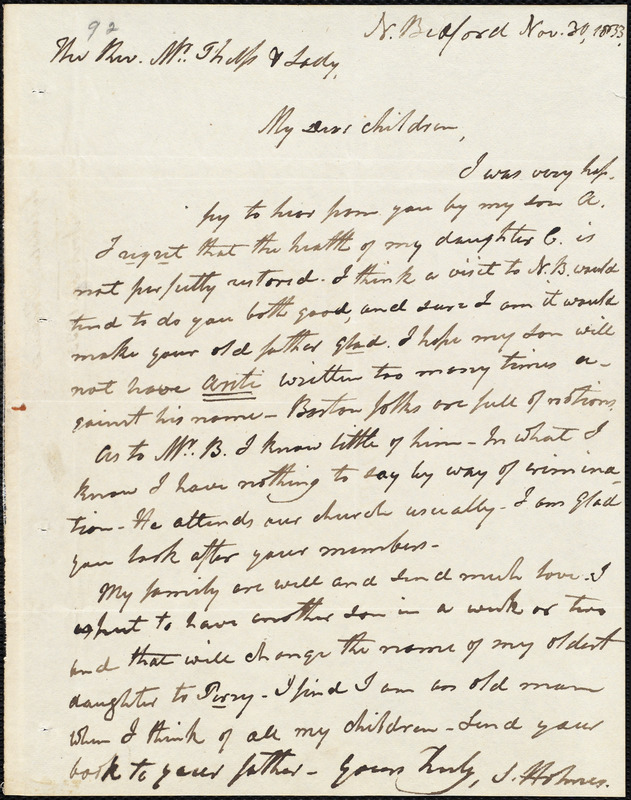 92
N. Bedford Nov. 30, 1833.
The Rev. Mr. Phelps & Lady,
My dear children,
I was very hap-
py to hear from you by my son A.
I regret that the health of my daughter C. is
not perfectly restored. I think a visit to N.B. would
tend to do you both good, and sure I am it would
make your old father glad. I hope my son will
not have Anti written too many times a-
gainst his name - Boston folks are full of notions.
As to Mr. B. I know little of him - In what I
know I have nothing to say by way of crimina-
tion - He attends our church usually - I am glad
you look after your members -
My family are well and send much love. I
expect to have another son in a week or two
and that will change the name of my oldest
daughter to Perry - I find I am an old man
when I think of all my children - Send your
book to your father - Yours truly, S. Holmes.